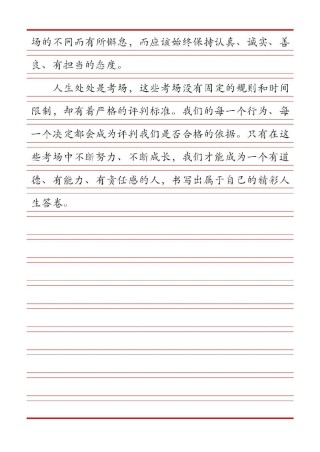 场的不同而有所懈怠，而应该始终保持认真、诚实、善
良、有担当的态度。
人生处处是考场，这些考场没有固定的规则和时间
限制，却有着严格的评判标准。我们的每一个行为、每
一个决定都会成为评判我们是否合格的依据。只有在这
些考场中不断努力、不断成长，我们才能成为一个有道
德、有能力、有责任感的人，书写出属于自己的精彩人
生答卷。